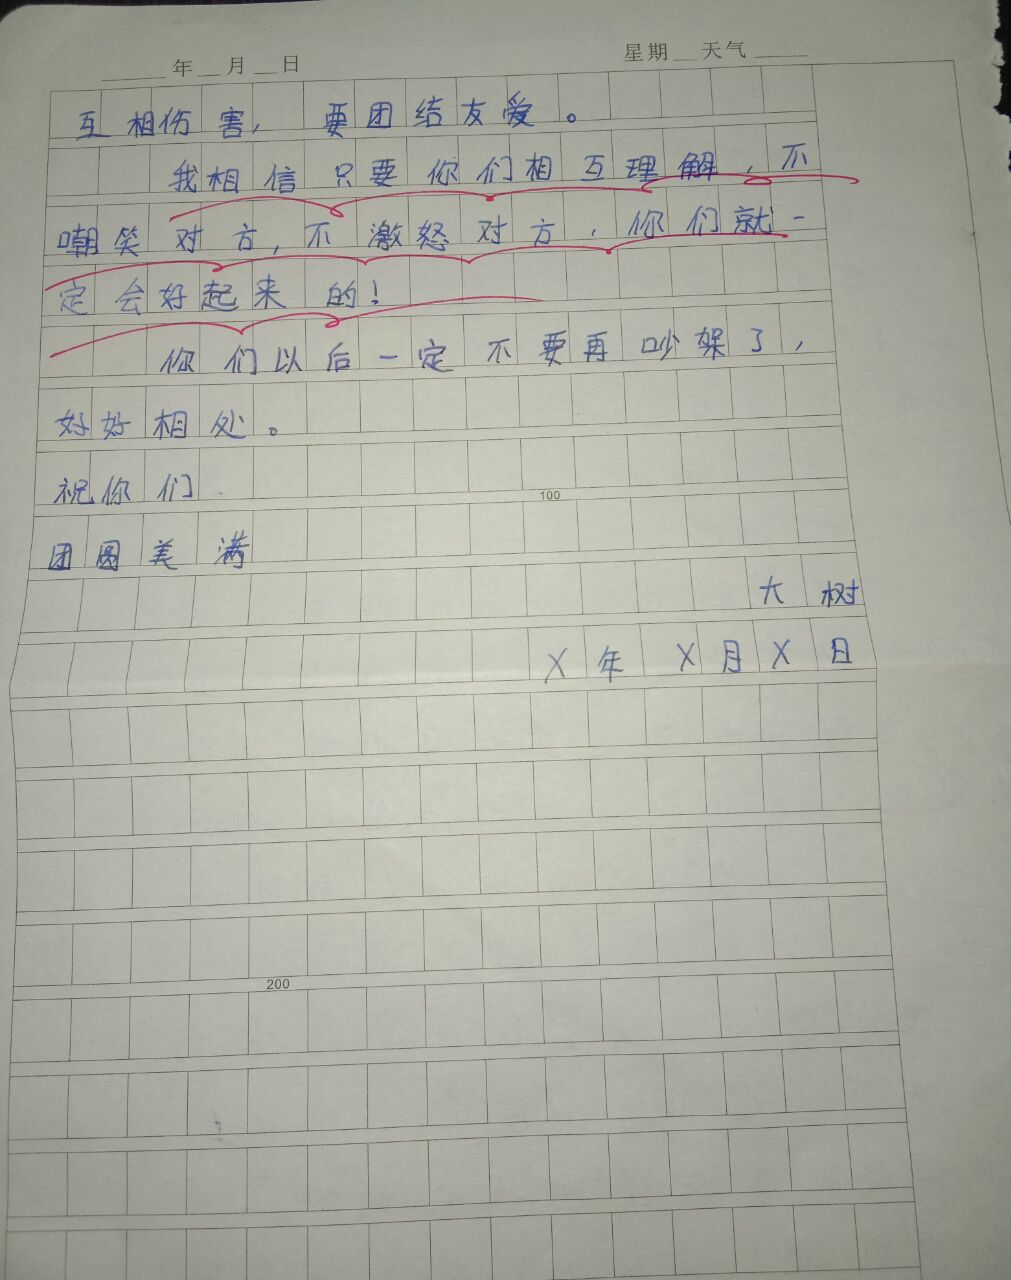 年 月 日 星期 天气
互相伤害，要团结友爱。
我相信只要你们相互理解，不
嘲笑对方，不激怒对方，你们就一
定会好起来的！
你们以后一定不要再吵架了，
好好相处。
祝你们
100
团圆美满
大树
X年X月X日
200